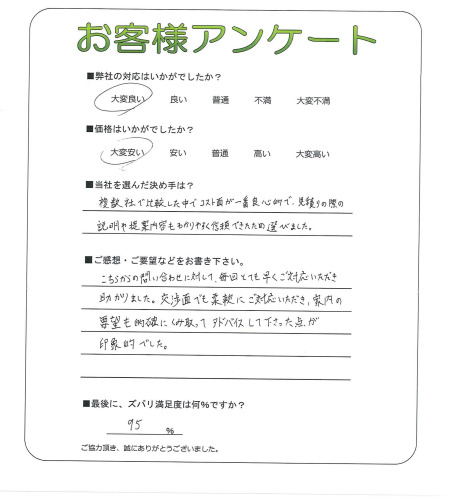 お客様アンケート
■弊社の対応はいかがでしたか?
大変良い 良い 普通 不満 大変不満
■価格はいかがでしたか?
大変安い 安い 普通 高い 大変高い
■当社を選んだ決め手は?
複数社で比較した中でコスト面が一番良心的で、見積りの際の
説明や提案内容もわかりやすく信頼できたため選びました。
■ご感想・ご要望などをお書き下さい。
こちらからの問い合わせに対して、毎回とても早くご対応いただき
助かりました。交渉面でも柔軟にご対応いただき、案内の
要望も的確にくみ取ってアドバイスして下さった点が
印象的でした。
■最後に、ズバリ満足度は何%ですか?
95 %
ご協力頂き、誠にありがとうございました。